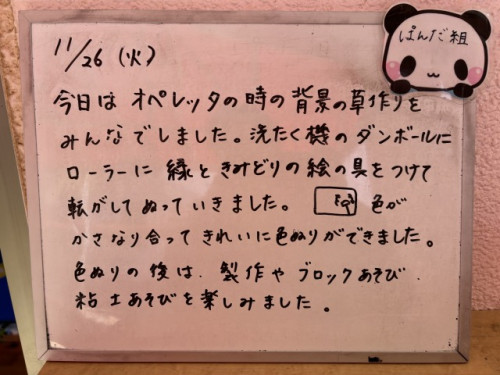 ぱんだ組
11/26 (火)
今日は オペレッタの時の背景の草作りを
みんなでしました。洗たく機のダンボールに
ローラーに 緑と きみどりの絵の具をつけて
転がしてぬっていきました。 色が
かさなり合って きれいに色ぬりができました。
色ぬりの後は、製作や ブロックあそび
粘土あそびを楽しみました。